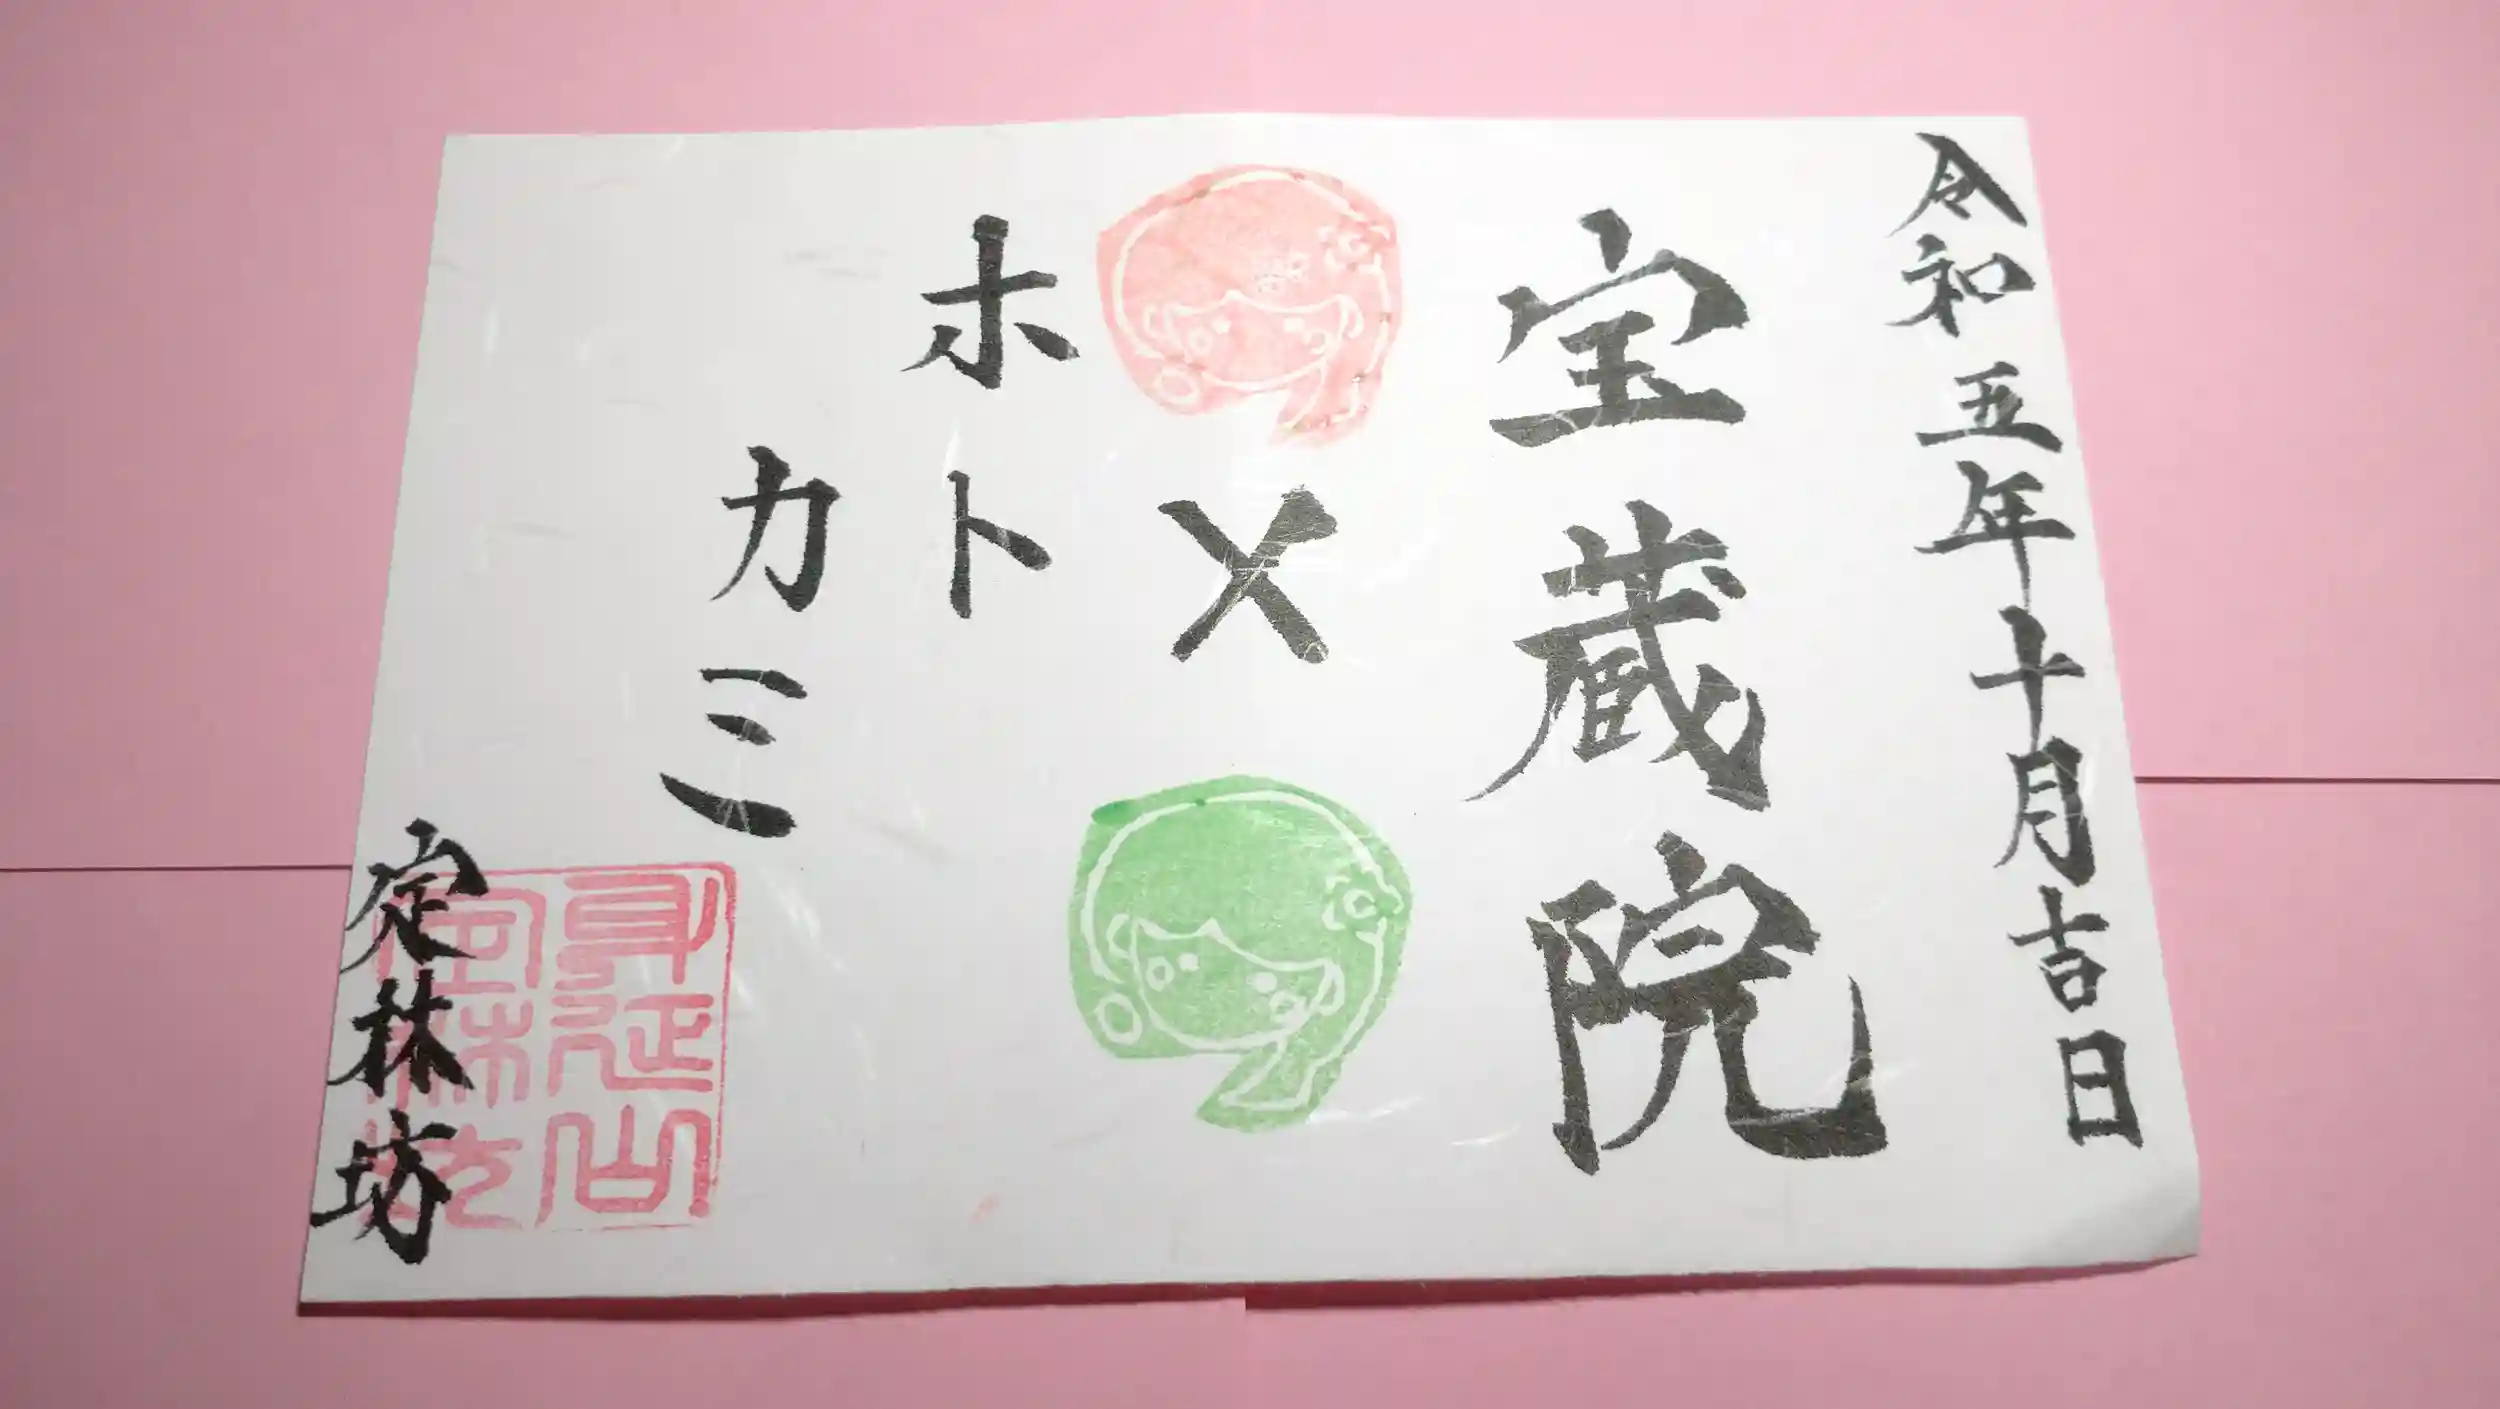 令和五年十月吉日
宝蔵院
×
ホト
カミ
定林坊
身延山
定林坊